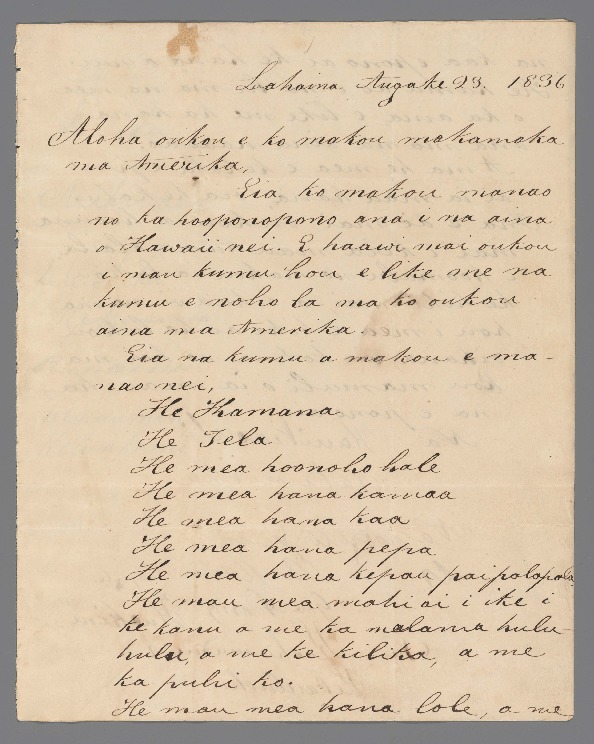 Lahaina Augate 23. 1836
Aloha oukou e ko makou makamaka
ma Amerika,
Eia ko makou manao
no ka hooponopono ana i na aina
o Hawaii nei. E haawi mai oukou
i mau kumu hou e like me na
kumu e noho la ma ko oukou
aina ma Amerika.
Eia na kumu a makou e ma-
nao nei,
He Kamana
He Tela
He mea hoonoho hale
He mea hana kamaa
He mea hana kaa
He mea hana pepa
He mea hana kepau paipalapala
He mau mea mahi ai i ike i
ke kanu a me ka malama hulu-
hulu, a me ke kilika, a me
ka puhi ko.
He mau mea hana lole, a me